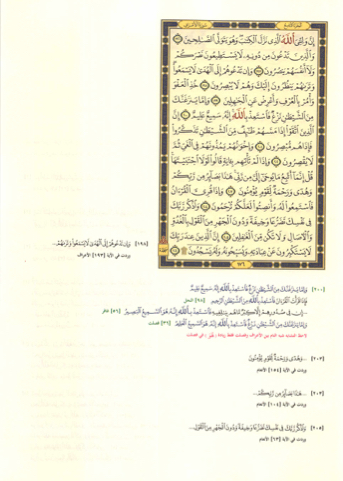 إِنَّ وَلِـِّۧىَ ٱللَّهُ ٱلَّذِى نَزَّلَ ٱلْكِتَٰبَ وَهُوَ يَتَوَلَّى ٱلصَّٰلِحِينَ
وَٱلَّذِينَ تَدْعُونَ مِن دُونِهِۦ لَا يَسْتَطِيعُونَ نَصْرَكُمْ
وَلَآ أَنفُسَهُمْ يَنصُرُونَ وَإِن تَدْعُوهُمْ إِلَى ٱلْهُدَىٰ لَا يَسْمَعُوا۟
وَتَرَىٰهُمْ يَنظُرُونَ إِلَيْكَ وَهُمْ لَا يُبْصِرُونَ خُذِ ٱلْعَفْوَ
وَأْمُرْ بِٱلْعُرْفِ وَأَعْرِضْ عَنِ ٱلْجَٰهِلِينَ وَإِمَّا يَنزَغَنَّكَ
مِنَ ٱلشَّيْطَٰنِ نَزْغٌ فَٱسْتَعِذْ بِٱللَّهِ إِنَّهُۥ سَمِيعٌ عَلِيمٌ
إِنَّ ٱلَّذِينَ ٱتَّقَوْا۟ إِذَا مَسَّهُمْ طَٰٓئِفٌ مِّنَ ٱلشَّيْطَٰنِ تَذَكَّرُوا۟
فَإِذَا هُم مُّبْصِرُونَ وَإِخْوَٰنُهُمْ يَمُدُّونَهُمْ فِى ٱلْغَىِّ ثُمَّ
لَا يُقْصِرُونَ وَإِذَا لَمْ تَأْتِهِم بِـَٔايَةٍ قَالُوا۟ لَوْلَا ٱجْتَبَيْتَهَا
قُلْ إِنَّمَآ أَتَّبِعُ مَا يُوحَىٰٓ إِلَىَّ مِن رَّبِّى هَٰذَا بَصَآئِرُ مِن رَّبِّكُمْ
وَهُدًى وَرَحْمَةٌ لِّقَوْمٍ يُؤْمِنُونَ وَإِذَا قُرِئَ ٱلْقُرْءَانُ
فَٱسْتَمِعُوا۟ لَهُۥ وَأَنصِتُوا۟ لَعَلَّكُمْ تُرْحَمُونَ وَٱذْكُر رَّبَّكَ
فِى نَفْسِكَ تَضَرُّعًا وَخِيفَةً وَدُونَ ٱلْجَهْرِ مِنَ ٱلْقَوْلِ بِٱلْغُدُوِّ
وَٱلْءَاصَالِ وَلَا تَكُن مِّنَ ٱلْغَٰفِلِينَ إِنَّ ٱلَّذِينَ عِندَ رَبِّكَ
لَا يَسْتَكْبِرُونَ عَنْ عِبَادَتِهِۦ وَيُسَبِّحُونَهُۥ وَلَهُۥ يَسْجُدُونَ
١٧٦
[١٩٨] وَإِن تَدْعُوهُمْ إِلَى ٱلْهُدَىٰ لَا يَسْمَعُوا۟ وَتَرَىٰهُمْ...
وردت في الآية [١٩٣] الأعراف
[٢٠٠] وَإِمَّا يَنزَغَنَّكَ مِنَ ٱلشَّيْطَٰنِ نَزْغٌ فَٱسْتَعِذْ بِٱللَّهِ إِنَّهُۥ سَمِيعٌ عَلِيمٌ
فَإِذَا قَرَأْتَ ٱلْقُرْءَانَ فَٱسْتَعِذْ بِٱللَّهِ مِنَ ٱلشَّيْطَٰنِ ٱلرَّجِيمِ [٩٨] النحل
...إِن فِى صُدُورِهِمْ إِلَّا كِبْرٌ مَّا هُم بِبَٰلِغِيهِ فَٱسْتَعِذْ بِٱللَّهِ إِنَّهُۥ هُوَ ٱلسَّمِيعُ ٱلْبَصِيرُ [٥٦] غافر
وَإِمَّا يَنزَغَنَّكَ مِنَ ٱلشَّيْطَٰنِ نَزْغٌ فَٱسْتَعِذْ بِٱللَّهِ إِنَّهُۥ هُوَ ٱلسَّمِيعُ ٱلْعَلِيمُ [٣٦] فصلت
[٢٠٣] ...وَهُدًى وَرَحْمَةٌ لِّقَوْمٍ يُؤْمِنُونَ
وردت في الآية [١٥٤] الأنعام
[٢٠٣] ...هَٰذَا بَصَآئِرُ مِن رَّبِّكُمْ...
وردت في الآية [١٠٤] الأنعام
[٢٠٥] وَٱذْكُر رَّبَّكَ فِى نَفْسِكَ تَضَرُّعًا وَخِيفَةً وَدُونَ ٱلْجَهْرِ مِنَ ٱلْقَوْلِ...
وردت في الآية [٦٣] الأنعام